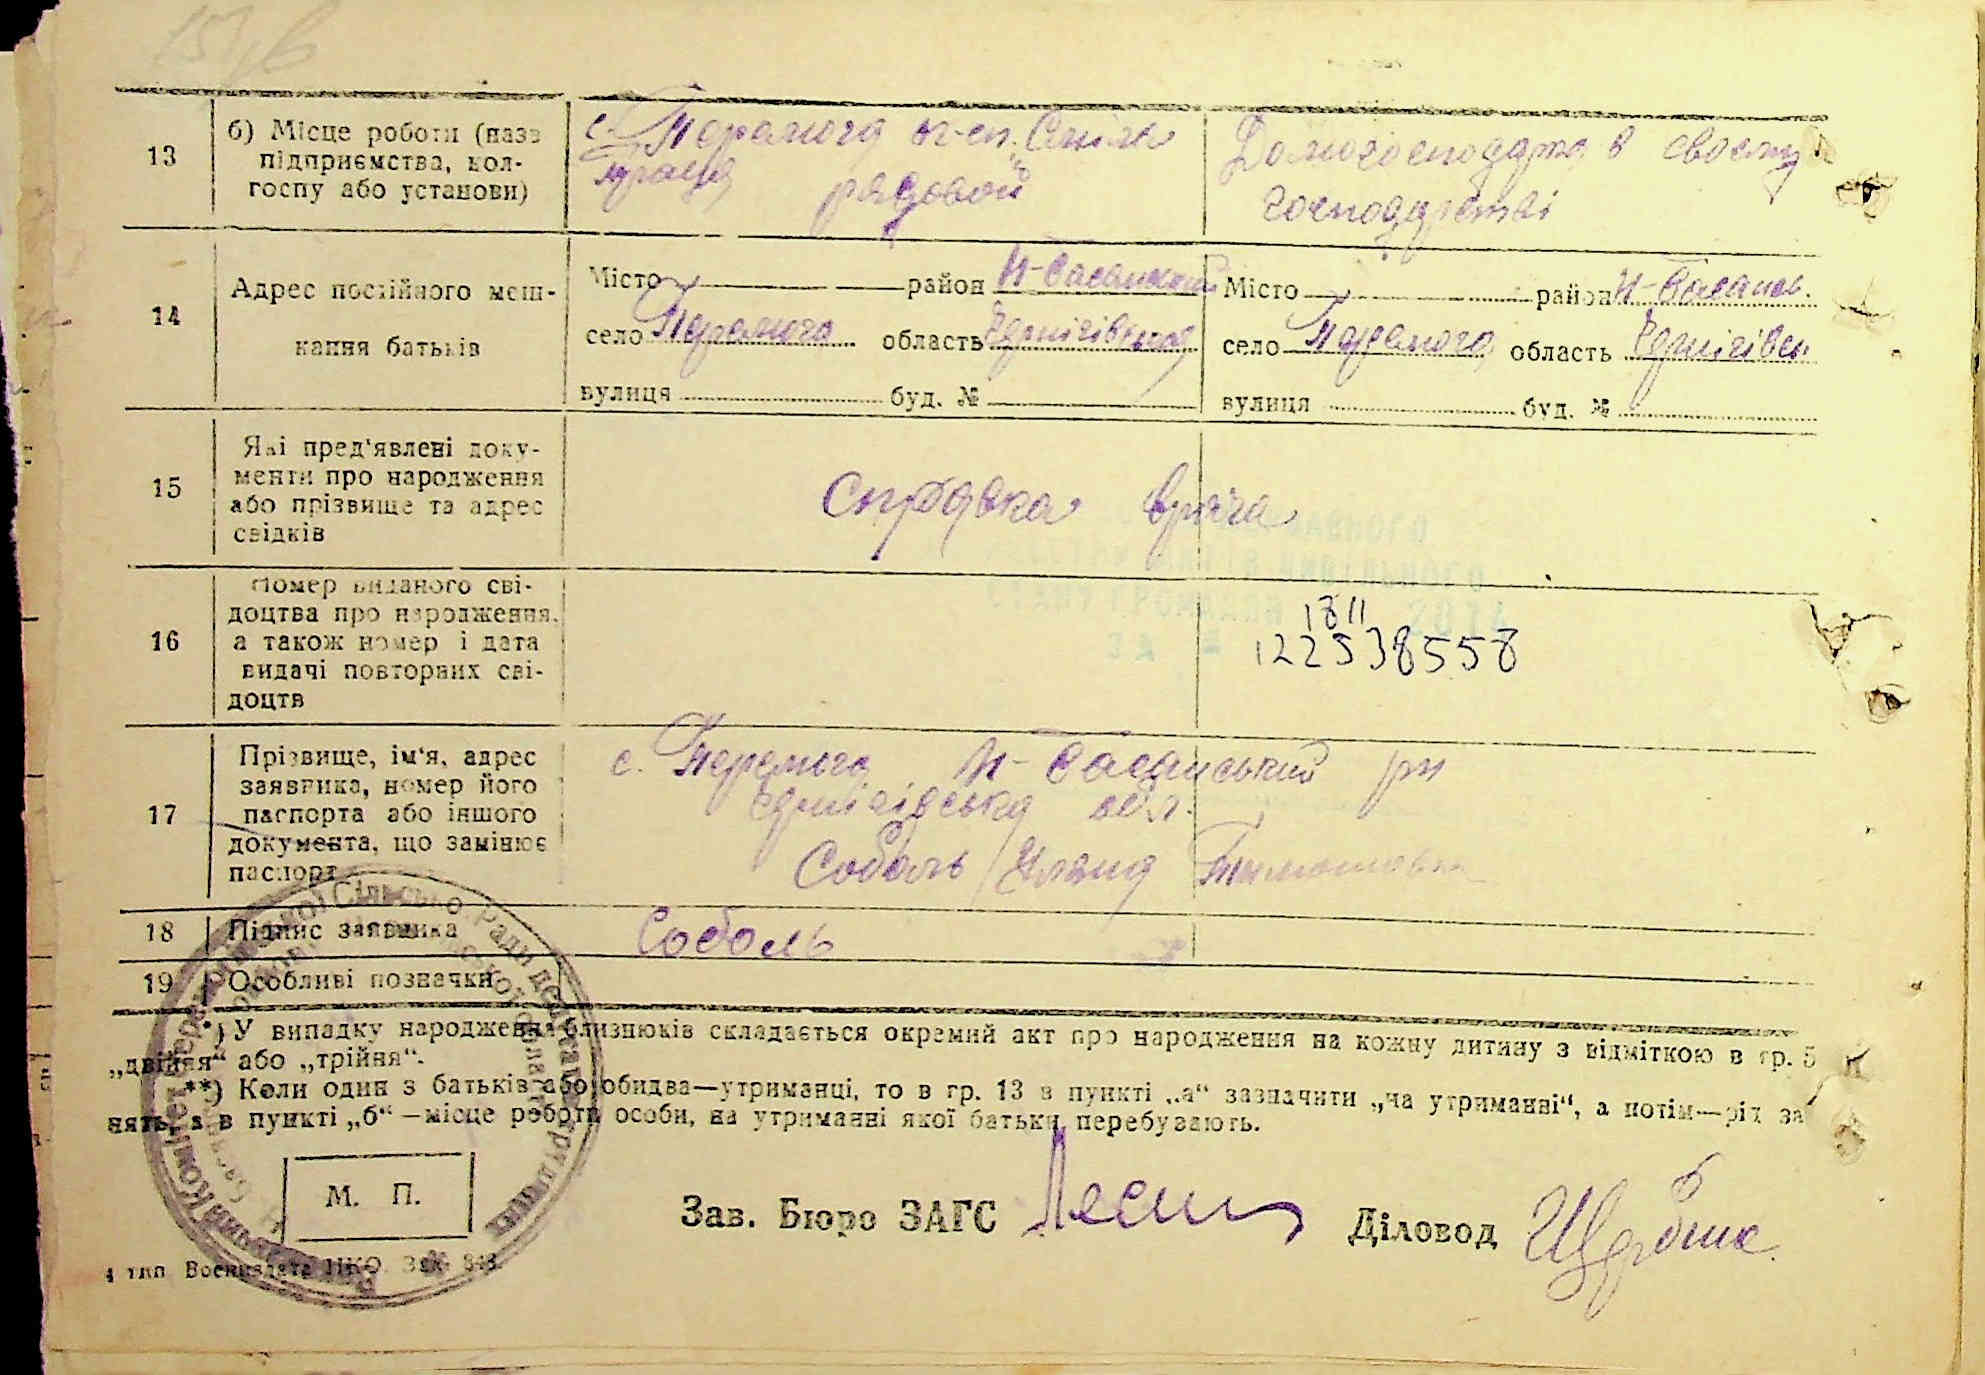 13
б) Місце роботи (назв
підприємства, кол-
госпу або установи)
с. Перемога к-сп. Спільн
праця рядовой
Домогосподарка в своєму
господарстві
14
Адрес постійного меш-
кання батьків
Місто район Н-Басанський
село Перемога область Чернігівська
вулиця буд. №
Місто район Н-Басансь.
село Перемога область Чернігівсь
вулиця буд. №
15
Які пред'явлені доку-
менти про народження
або прізвище та адрес
свідків
Справка врача
16
Номер виданого сві-
доцтва про народження,
а також номер і дата
видачі повторних сві-
доцтв
1811
122538558
17
Прізвище, ім'я, адрес
заявника, номер його
паспорта або іншого
документа, що замінює
паспорт
с. Перемога Н-Басанський рн
Чернігівська обл.
Соболь Уляна Тимошовна
18
Підпис заявника
Соболь
19
Особливі позначки
*) У випадку народження близнюків складається окремий акт про народження на кожну дитину з відміткою в гр. 5
„двійня“ або „трійня“.
**) Коли один з батьків або обидва—утриманці, то в гр. 13 в пункті „а“ зазначити „на утриманні“, а потім—рід за
нять, а в пункті „б“—місце роботи особи, на утриманні якої батьки перебувають.
М. П.
Зав. Бюро ЗАГС
Діловод Щербик
4 тип. Воениздата НКО. Зак. 348